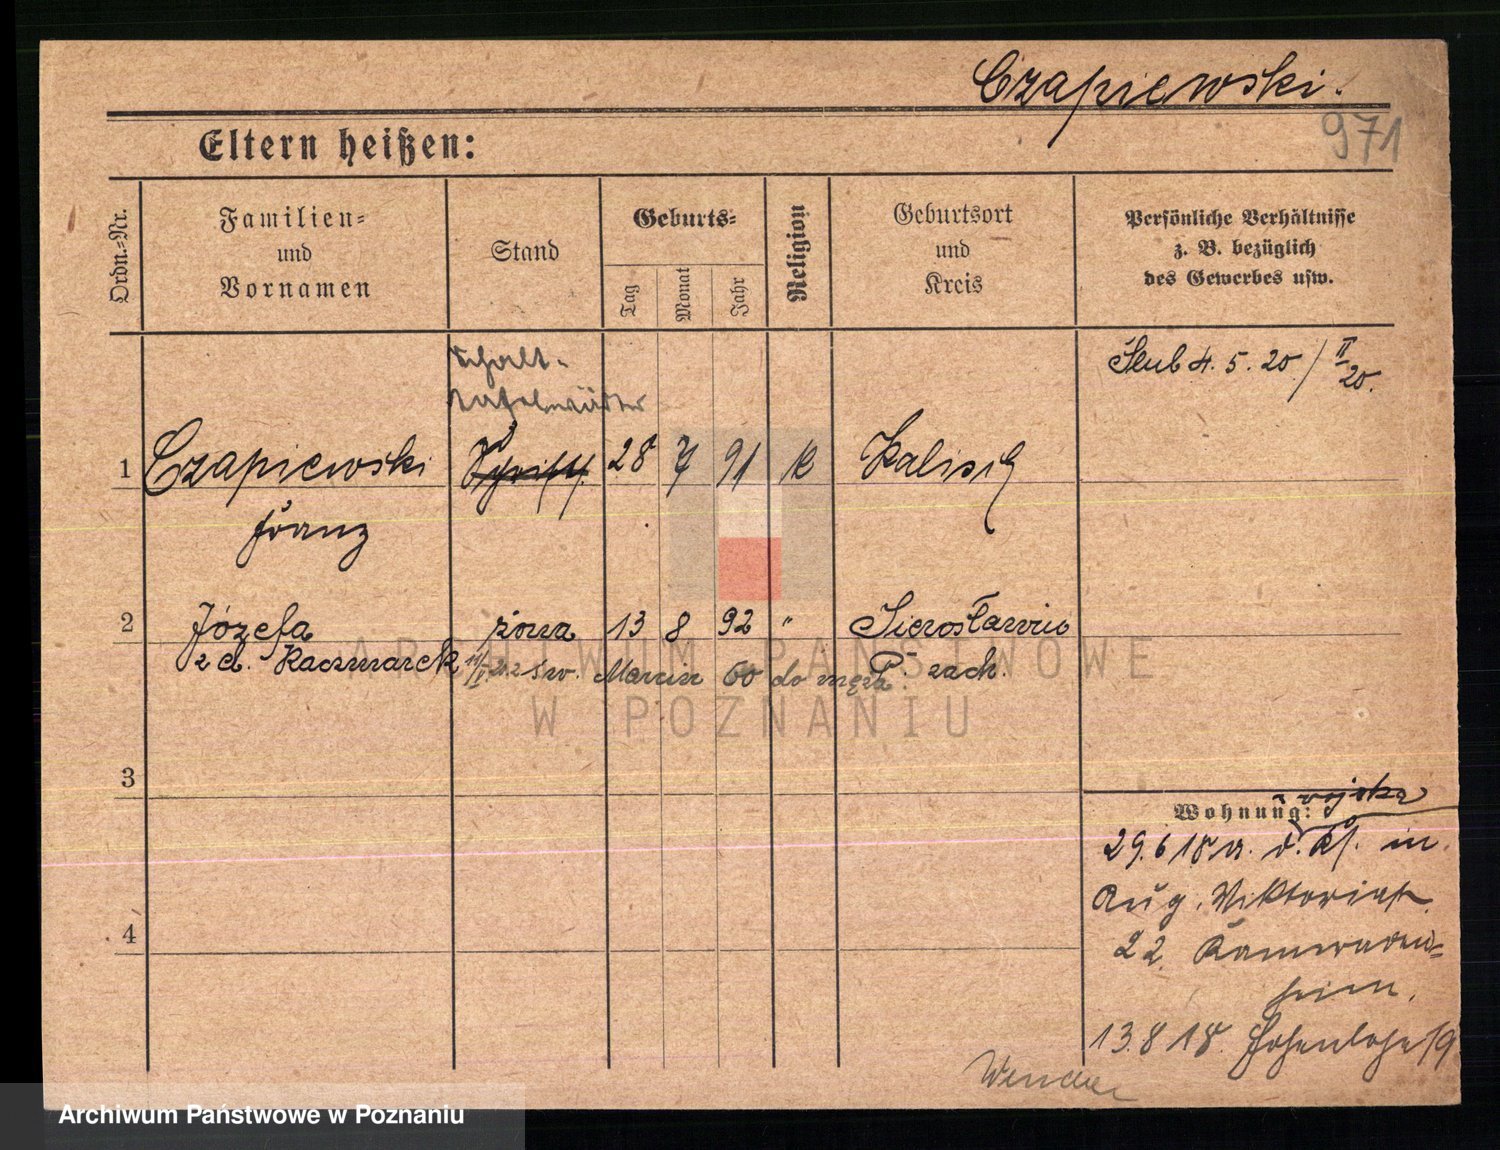 Czapiewski.
971
Eltern heißen:
Ordn.=Nr.
Familien=
und
Vornamen
Stand
Geburts=
Tag
Monat
Jahr
Religion
Geburtsort
und
Kreis
Persönliche Verhältnisse
z. B. bezüglich
des Gewerbes usw.
Schalt-
tafelwärter
Ślub 4. 5. 20 / II
20.
1 Czapiewski 28 7 91 k Kalisch
Franz
2 Józefa żona 13 8 92 " Sierosławiu
z d. Kaczmarek św. Marcin 60 do męża P. zach.
3
Wohnung:
wojska
29. 6 18 in
Aug. Viktoriastr.
4
22. Kameraden=
heim.
13. 8 18. Hohenlohe 19
Wenden
ARCHIWUM PAŃSTWOWE
W POZNANIU
Archiwum Państwowe w Poznaniu